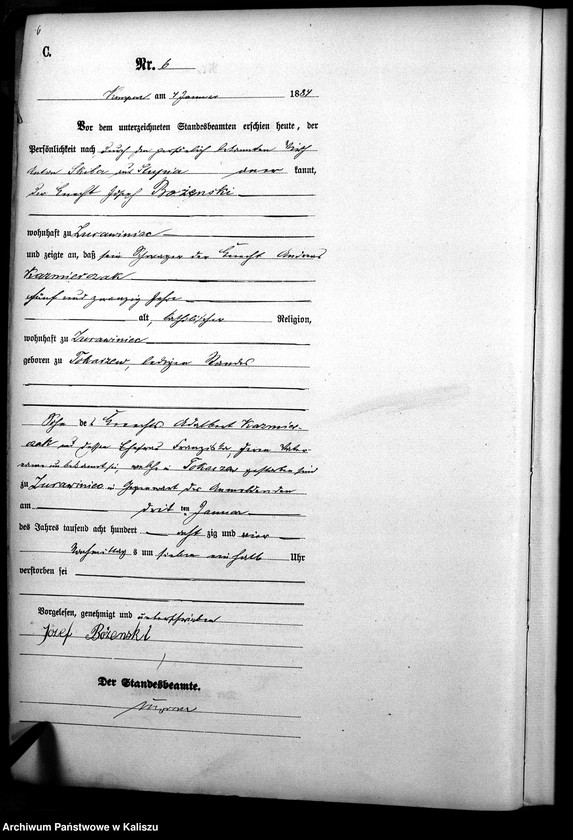 6
C.
Nr. 6
Kempen am 4 Januar 1884
Vor dem unterzeichneten Standesbeamten erschien heute, der
Persönlichkeit nach durch den persönlich bekannten Wirth
Anton Skiba aus kannt,
der Knecht Josef Bożenski
wohnhaft zu Zurawiniec
und zeigte an, daß sein Schwager der Knecht Andreas
Kazmierczak
fünf und zwanzig Jahre
alt, katholischer Religion,
wohnhaft zu Zurawiniec
geboren zu Tokarzew, ledigen Standes
Sohn des Knechts Adalbert Kazmier-
czak und dessen Ehefrau Franziska, deren Vater-
name unbekannt sei, welche in Tokarzew gestorben sind
zu Zurawiniec in Gegenwart des Anmeldenden
am dritten Januar
des Jahres tausend acht hundert achtzig und vier
Nachmittags um sieben ein halb Uhr
verstorben sei
Vorgelesen, genehmigt und unterschrieben
Józef Bożenski
Der Standesbeamte.
Archiwum Państwowe w Kaliszu